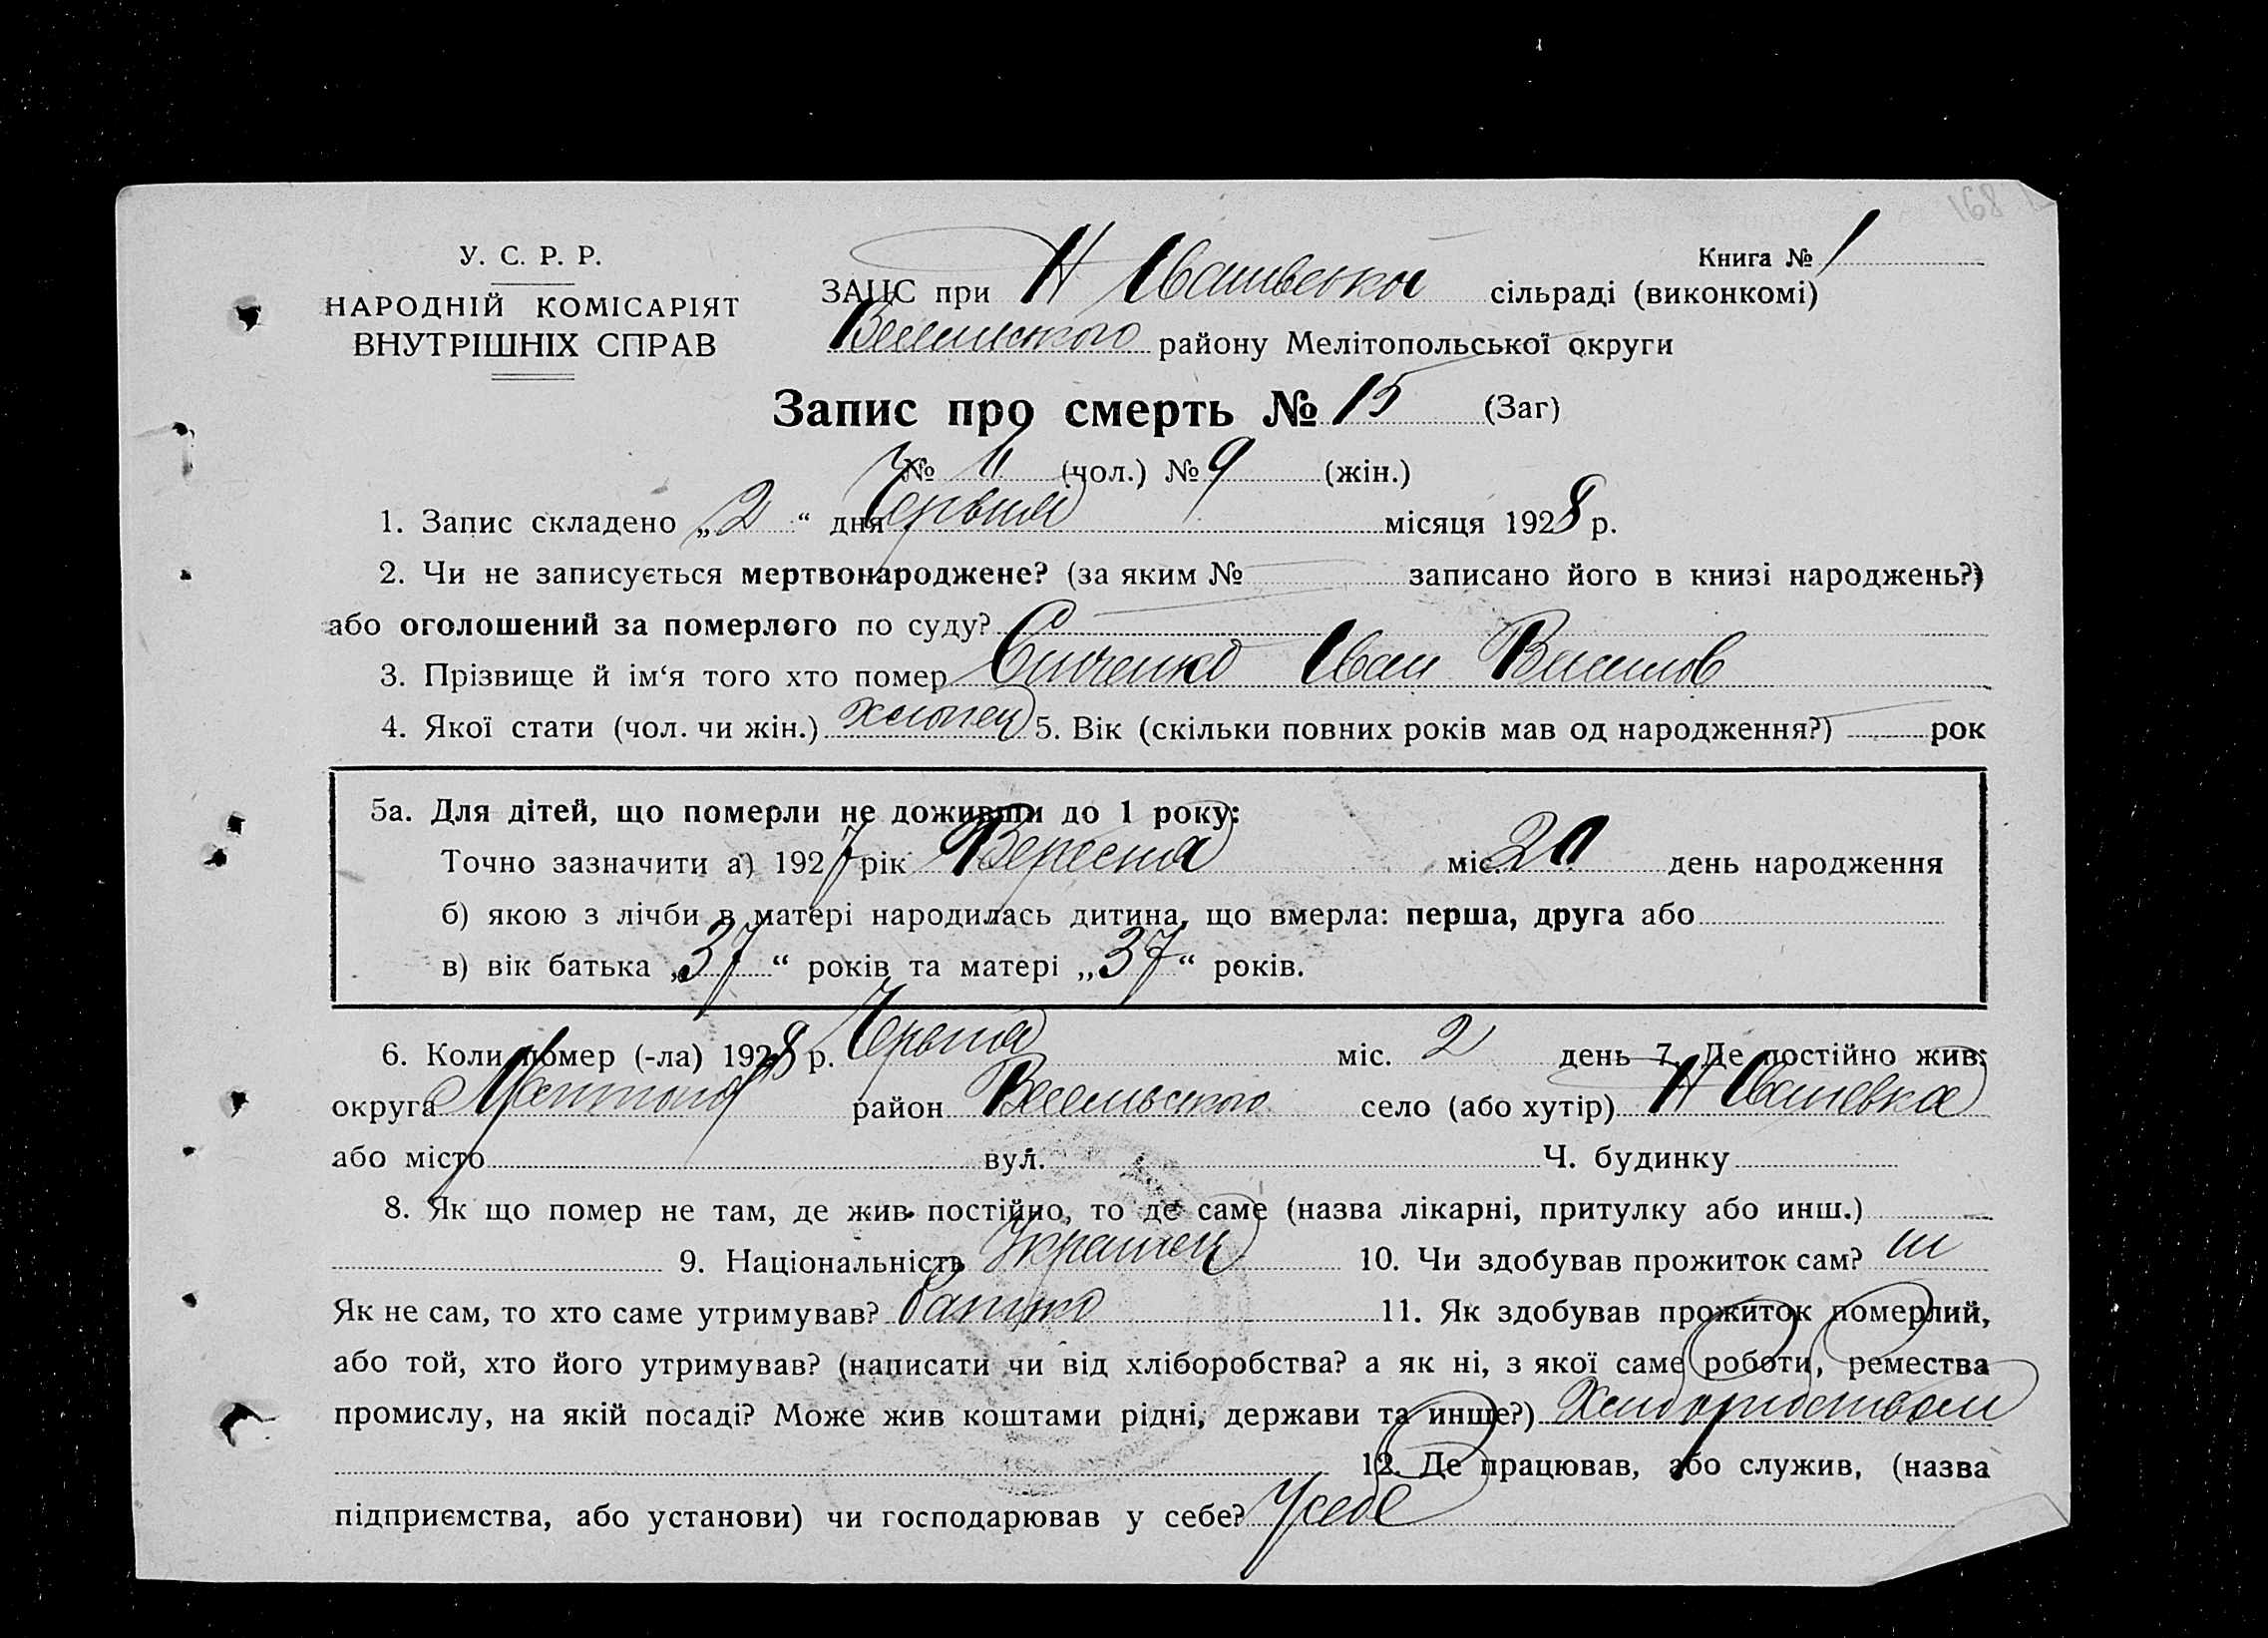 168
У. С. Р. Р.
НАРОДНІЙ КОМІСАРІЯТ
ВНУТРІШНІХ СПРАВ
Книга № 1
ЗАЦС при Н сільраді (виконкомі)
району Мелітопольської округи
Запис про смерть № 15 (Заг)
№ 11 (чол.) № 9 (жін.)
1. Запис складено „2“ дня Червня місяця 1928 р.
2. Чи не записується мертвонароджене? (за яким № записано його в книзі народжень?)
або оголошений за померлого по суду?
3. Прізвище й ім‘я того хто помер Іван
4. Якої стати (чол. чи жін.) хлопец 5. Вік (скільки повних років мав од народження?) рок
5а. Для дітей, що померли не доживши до 1 року:
Точно зазначити а) 1927 рік Вересня міс. 20 день народження
б) якою з лічби в матері народилась дитина, що вмерла: перша, друга або
в) вік батька „37“ років та матері „37“ років.
6. Коли помер (-ла) 1928 р. Червня міс. 2 день 7. Де постійно жив:
округа район село (або хутір) Н
або місто вул. Ч. будинку
8. Як що помер не там, де жив постійно, то де саме (назва лікарні, притулку або инш.)
9. Національність Українец 10. Чи здобував прожиток сам? ні
Як не сам, то хто саме утримував? батько 11. Як здобував прожиток померлий,
або той, хто його утримував? (написати чи від хліборобства? а як ні, з якої саме роботи, ремества
промислу, на якій посаді? Може жив коштами рідні, держави та инше?) Хліборобством
12. Де працював, або служив, (назва
підприємства, або установи) чи господарював у себе? У себе